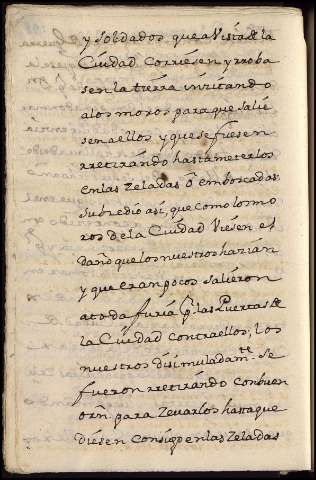 y soldados que a Vista de la
Ciudad corriesen y rroba
sen la tierra inzitando
alos moros para que salie
sen aellos y que se fuesen
rretirando hasta meterlos
enlas zeladas ô emboscadas
subzedio asi, que como los mo
ros de la Ciudad Viesen el
daño que los nuestros hazian
y que eran pocos salieron
atoda furia p. las Puertas de
la Ciudad contraellos, los
nuestros disimuladamte. se
fueron rretirando conbuen
orn. para Zevarlos hastaque
diesen consigo enlas zeladas